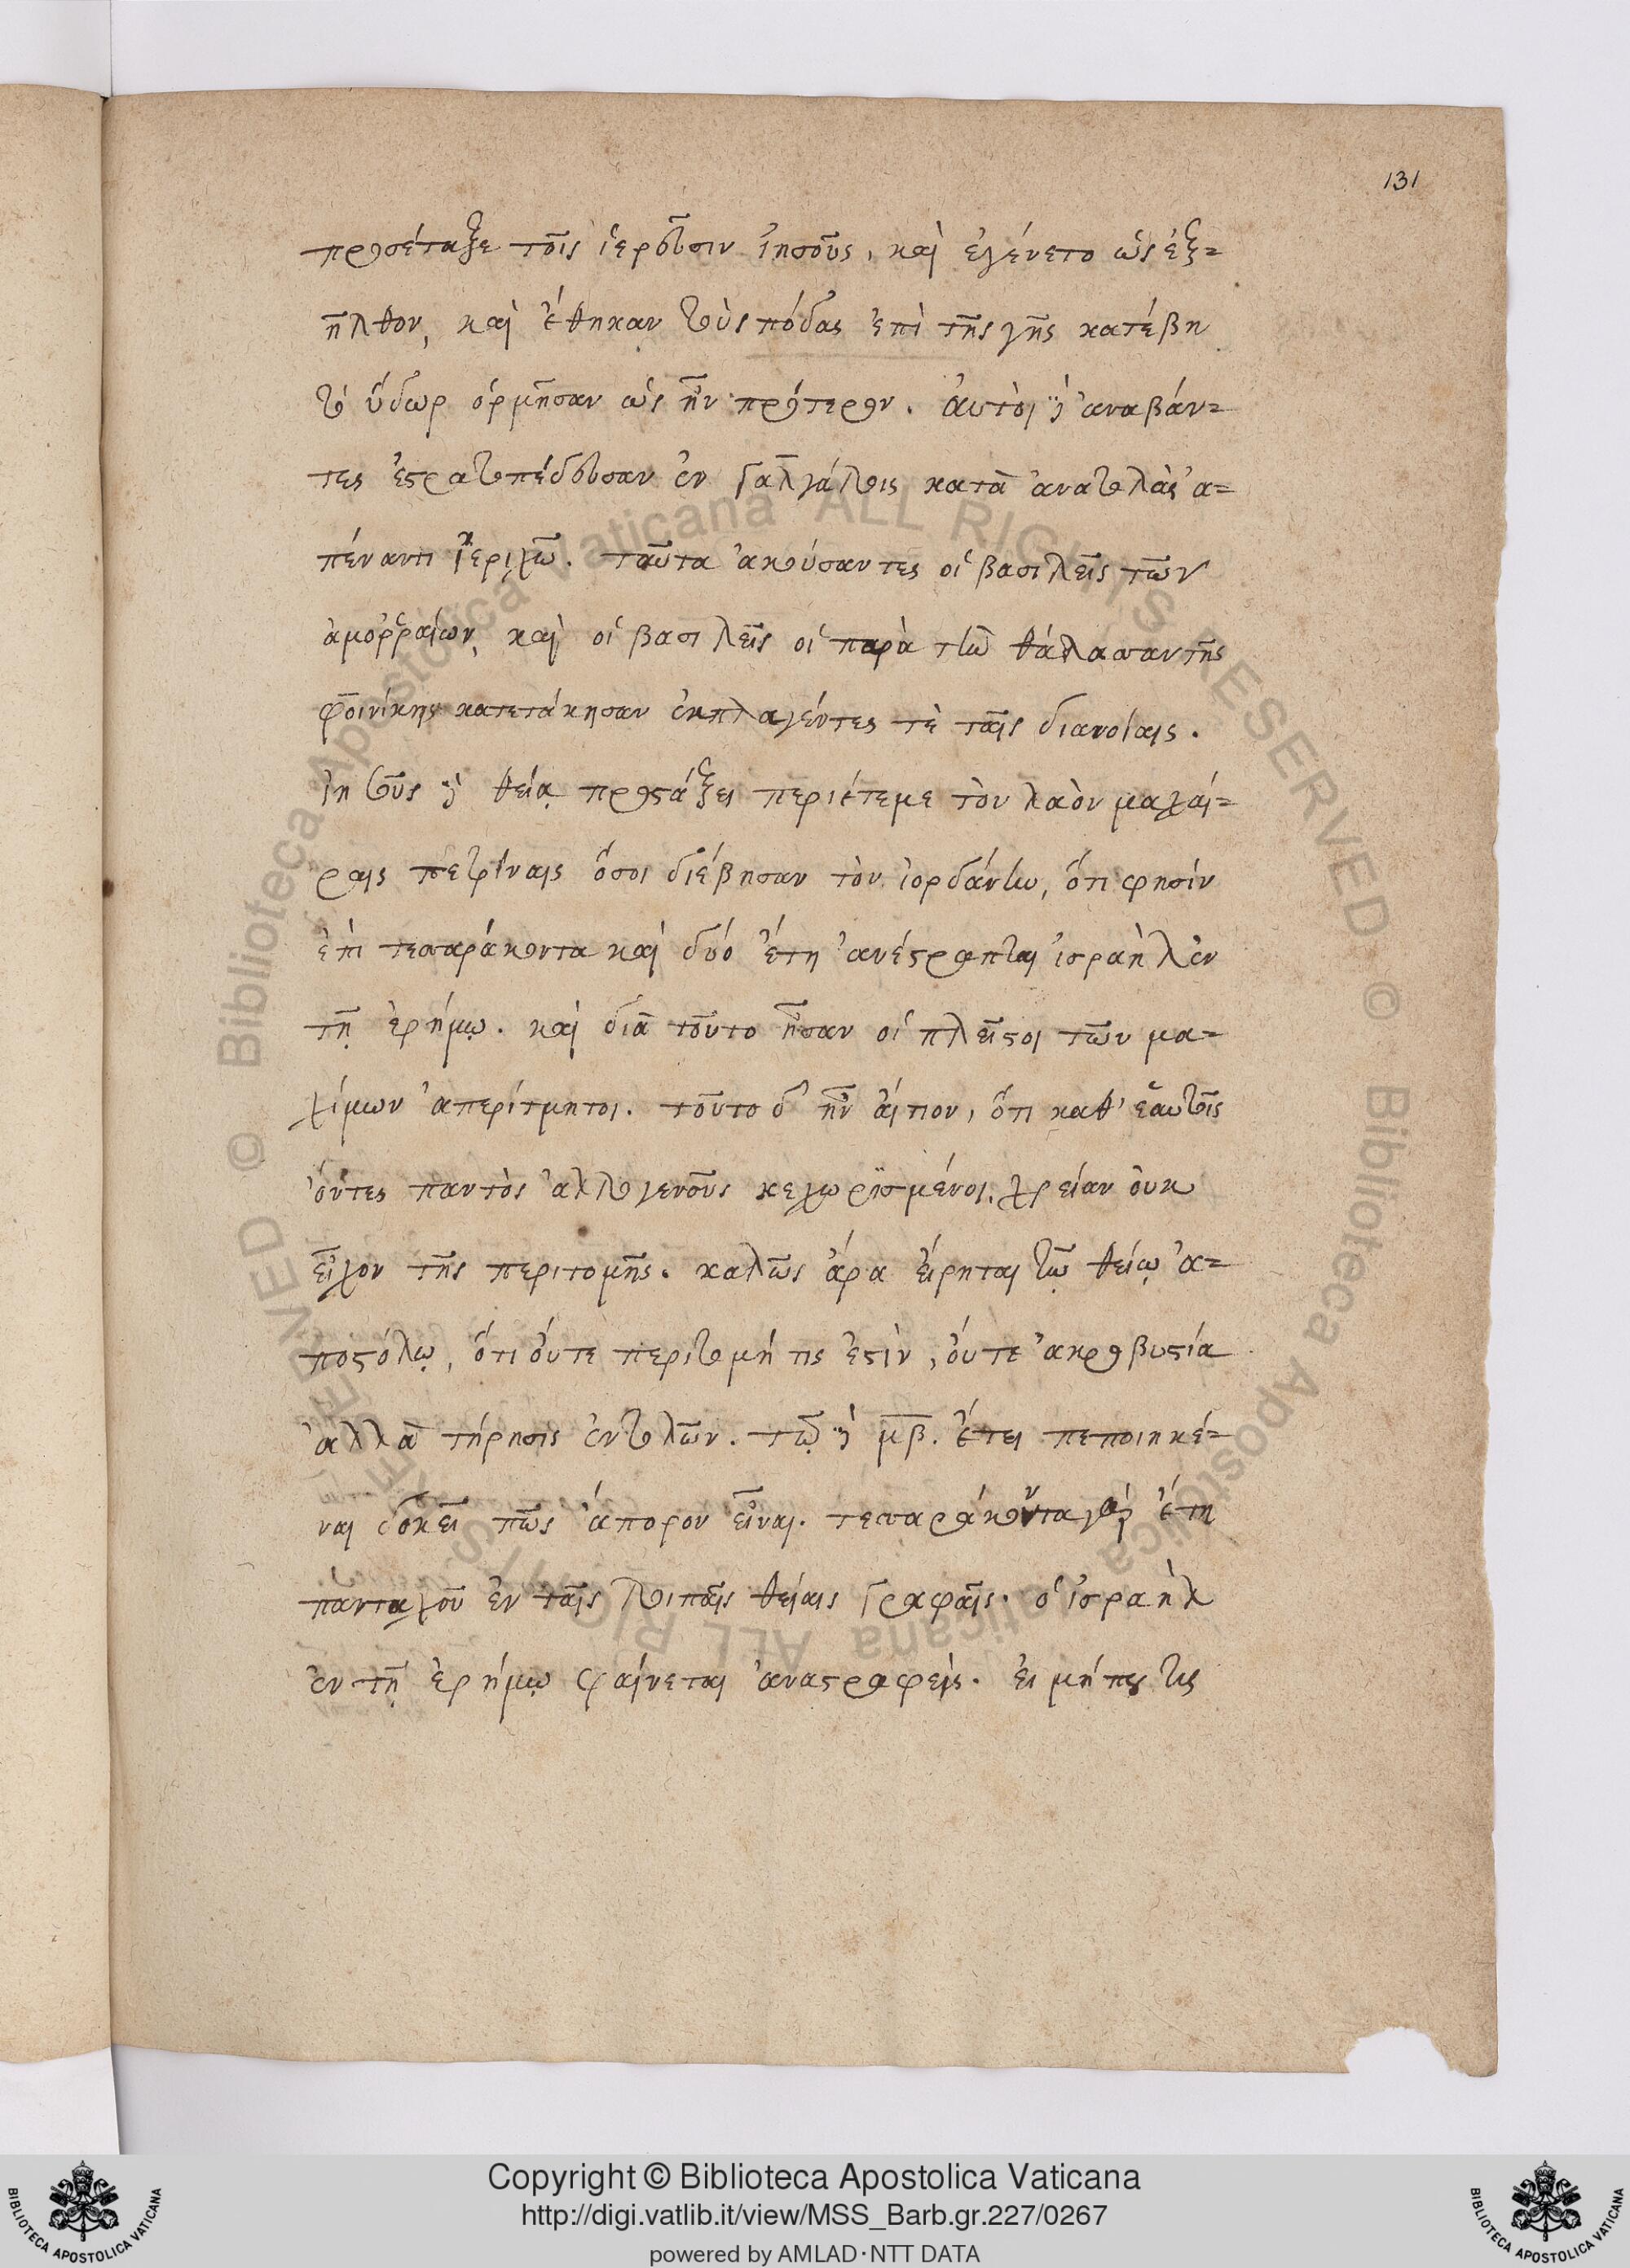 131
προσέταξε τοῖς ἱερεῦσιν Ἰησοῦς, καὶ ἐγένετο ὡς ἐξ=
ῆλθον, καὶ ἔθηκαν τοὺς πόδας ἐπὶ τῆς γῆς κατέβη
τὸ ὕδωρ ὁρμῆσαν ὡς ἦν πρότερον. ἀυτοὶ δὲ ἀναβάν=
τες ἐστρατοπέδευσαν ἐν Γαλγάλοις κατὰ ἀνατολὰς ἀ=
πέναντι Ἱεριχῶ. ταῦτα ἀκούσαντες οἱ βασιλεῖς τῶν
ἀμοῤῥαίων, καὶ οἱ βασιλεῖς οἱ παρὰ τὴν θάλασσαν τῆς
φοινίκης κατετάκησαν ἐκπλαγέντες τὲ ταῖς διανοίαις.
Ἰησοῦς δὲ θείᾳ προστάξει περιέτεμε τὸν λαὸν μαχαί=
ραις πετρίναις ὅσοι διέβησαν τὸν ἰορδάνην, ὅτι φησίν
ἐπὶ τεσσαράκοντα καὶ δύο ἔτη ἀνέστραπται ἰσραὴλ ἐν
τῇ ἐρήμῳ. καὶ διὰ τοῦτο ἦσαν οἱ πλεῖστοι τῶν μα=
χίμων ἀπερίτμητοι. τοῦτο δ' ἦν ἄιτιον, ὅτι καθ' ἑαυτοῖς
ὄντες παντὸς ἀλλογενοῦς κεχωρϊσμένοι, χρείαν ὀυκ
εἶχον τῆς περιτομῆς. καλῶς ἄρα ἔιρηται τῷ θείῳ ἀ=
ποστόλῳ, ὅτι ὄυτε περιτομή τις ἐστὶν, ὄυτε ἀκροβυστία
ἀλλὰ τήρησις ἐντολῶν. τῷ δὲ μβ. ἔτει πεποιηκέ=
ναι δοκεῖ πῶς ἄπορον εἶναι. τεσσαράκοντα γὰρ ἔτη
πανταχοῦ ἐν ταῖς λοιπαῖς θείαις Γραφαῖς. ὁ ἰσραὴλ
ἐν τῇ ἐρήμῳ φαίνεται ἀναστραφεὶς. ἐι μή πως τις
Copyright © Biblioteca Apostolica Vaticana
http://digi.vatlib.it/view/MSS_Barb.gr.227/0267
powered by AMLAD·NTT DATA